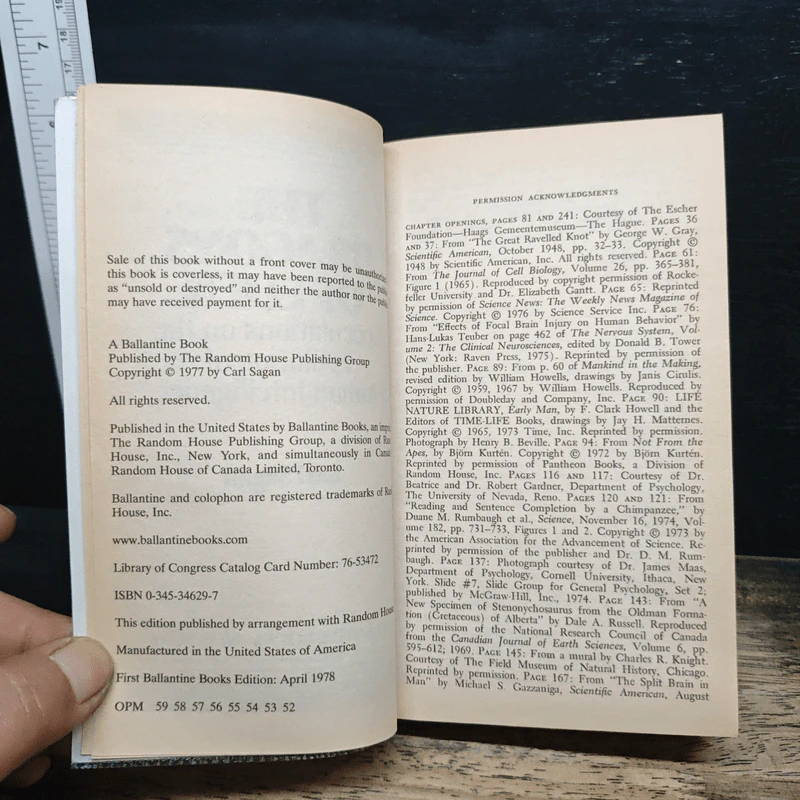 7
19
18
17
Sale of this book without a front cover may be
this book is coverless, it may have been reported to the
as "unsold or destroyed" and neither the author nor the
may have received payment for it.
A Ballantine Book
Published by The Random House Publishing Group
Copyright © 1977 by Carl Sagan
All rights reserved.
Published in the United States by Ballantine Books, an
The Random House Publishing Group, a division of
House, Inc., New York, and simultaneously in
Random House of Canada Limited, Toronto.
Ballantine and colophon are registered trademarks of
House, Inc.
www.ballantinebooks.com
Library of Congress Catalog Card Number: 76-53472
ISBN 0-345-34629-7
This edition published by arrangement with Random
Manufactured in the United States of America
First Ballantine Books Edition: April 1978
OPM 59 58 57 56 55 54 53 52
PERMISSION ACKNOWLEDGMENTS
CHAPTER OPENINGS, PAGES 81 AND 241: Courtesy of The Escher
Foundation—Haags Gemeentemuseum—The Hague. PAGES 36
AND 37: From "The Great Ravelled Knot" by George W. Gray,
Scientific American, October 1948, pp. 32–33. Copyright ©
1948 by Scientific American, Inc. All rights reserved. PAGE 61:
From The Journal of Cell Biology, Volume 26, pp. 365–381,
Figure 1 (1965). Reproduced by copyright permission of Rocke-
feller University and Dr. Elizabeth Gantt. PAGE 65: Reprinted
by permission of Science News: The Weekly News Magazine of
Science. Copyright © 1976 by Science Service Inc. PAGE 76:
From "Effects of Focal Brain Injury on Human Behavior" by
Hans-Lukas Teuber on page 462 of The Nervous System, Vol-
ume 2: The Clinical Neurosciences, edited by Donald B. Tower
(New York: Raven Press, 1975). Reprinted by permission of
the publisher. PAGE 89: From p. 60 of Mankind in the Making,
revised edition by William Howells, drawings by Janis Cirulis.
Copyright © 1959, 1967 by William Howells. Reproduced by
permission of Doubleday and Company, Inc. PAGE 90: LIFE
NATURE LIBRARY, Early Man, by F. Clark Howell and the
Editors of TIME-LIFE Books, drawings by Jay H. Matternes.
Copyright © 1965, 1973 Time, Inc. Reprinted by permission.
Photograph by Henry B. Beville. PAGE 94: From Not From the
Apes, by Björn Kurtén. Copyright © 1972 by Björn Kurtén.
Reprinted by permission of Pantheon Books, a Division of
Random House, Inc. PAGES 116 AND 117: Courtesy of Dr.
Beatrice and Dr. Robert Gardner, Department of Psychology,
The University of Nevada, Reno. PAGES 120 AND 121: From
"Reading and Sentence Completion by a Chimpanzee," by
Duane M. Rumbaugh et al., Science, November 16, 1974, Vol-
ume 182, pp. 731–733, Figures 1 and 2. Copyright © 1973 by
the American Association for the Advancement of Science. Re-
printed by permission of the publisher and Dr. D. M. Rum-
baugh. PAGE 137: Photograph courtesy of Dr. James Maas,
Department of Psychology, Cornell University, Ithaca, New
York. Slide #7, Slide Group for General Psychology, Set 2;
published by McGraw-Hill, Inc., 1974. PAGE 143: From "A
New Specimen of Stenonychosaurus from the Oldman Forma-
tion (Cretaceous) of Alberta" by Dale A. Russell. Reproduced
by permission of the National Research Council of Canada
from the Canadian Journal of Earth Sciences, Volume 6, pp.
595–612; 1969. PAGE 145: From a mural by Charles R. Knight.
Courtesy of The Field Museum of Natural History, Chicago.
Reprinted by permission. PAGE 167: From "The Split Brain in
Man" by Michael S. Gazzaniga, Scientific American, August